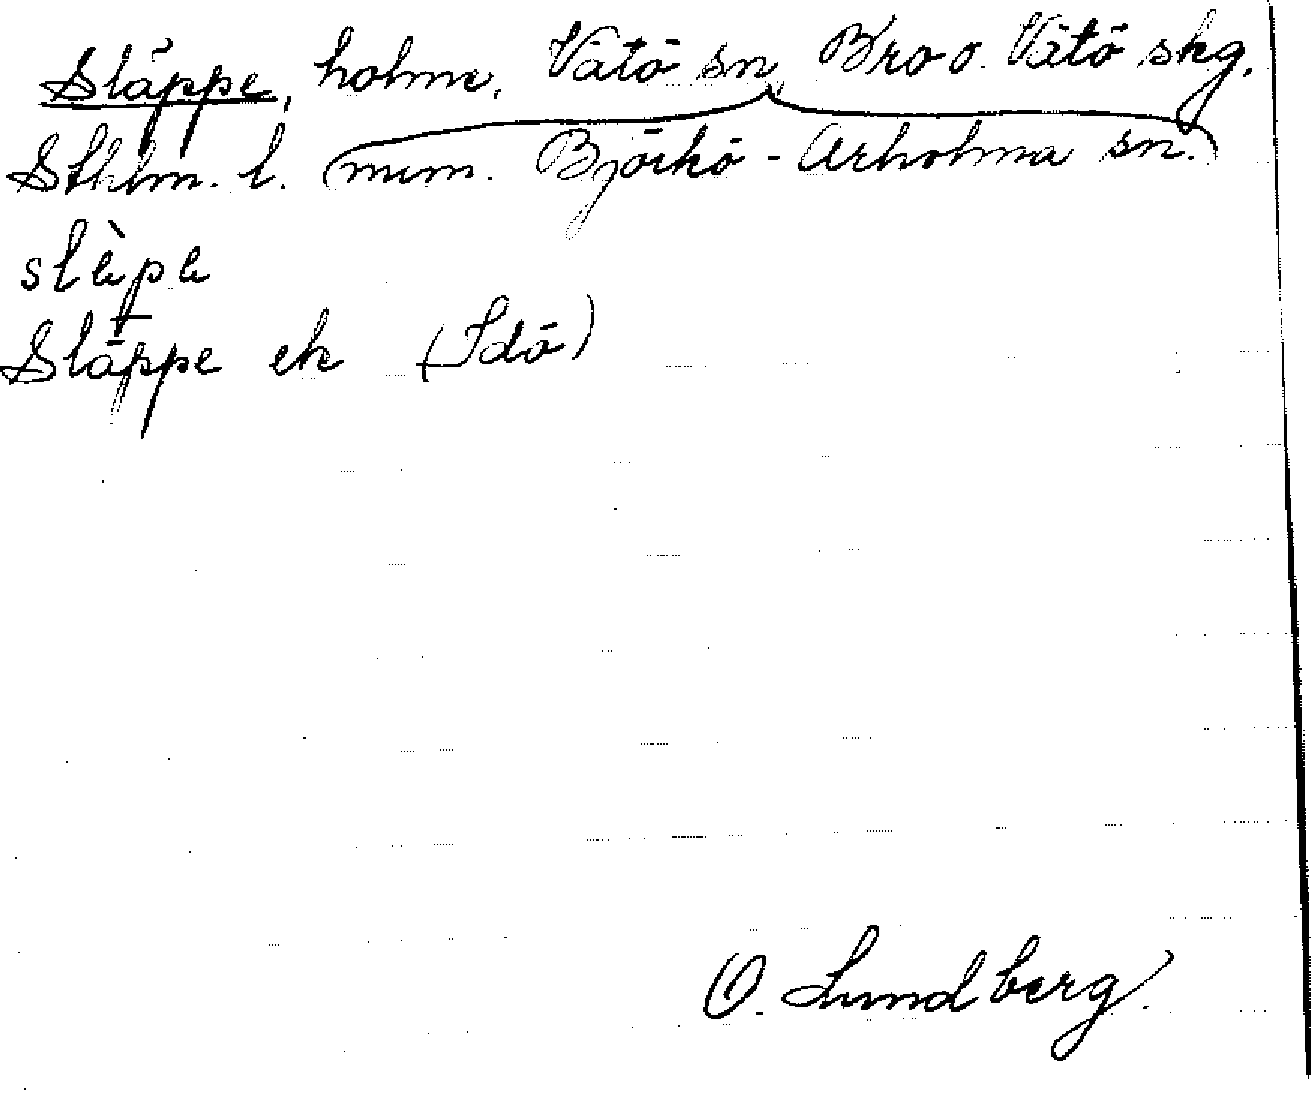 Släppe, holme, Vätö sn, Bro o. Vätö skg.
Sthlm. l. (num. Björkö - Arholma sn.)
slèpe
Släppe ek (Idö)
O. Lundberg.